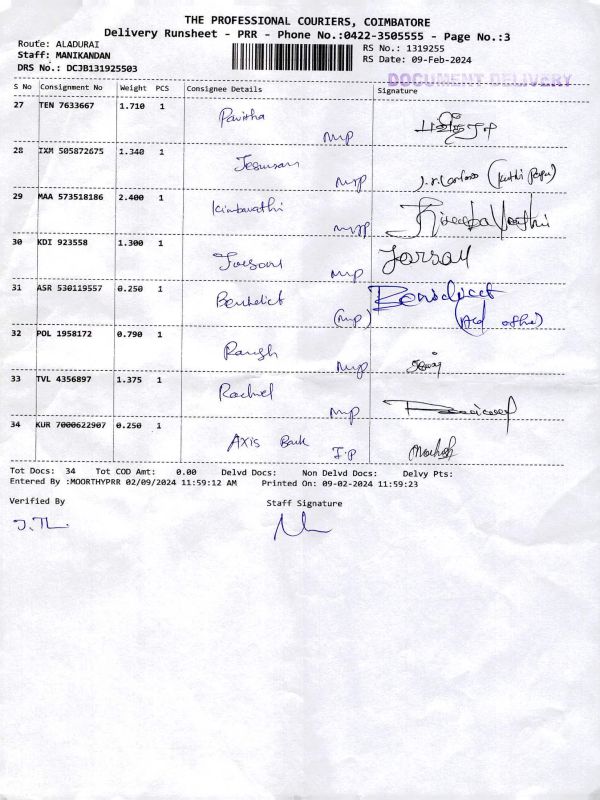 THE PROFESSIONAL COURIERS, COIMBATORE
Delivery Runsheet - PRR - Phone No.:0422-3505555 - Page No.:3
Route: ALADURAI
Staff: MANIKANDAN
DRS No.: DCJB131925503
RS No.: 1319255
RS Date: 09-Feb-2024
DOCUMENT DELIVERY
S No Consignment No Weight PCS Consignee Details Signature
27 TEN 7633667 1.710 1 Pavitha
mp
28 IXM 505872675 1.340 1
mp
29 MAA 573518186 2.400 1
mp
30 KDI 923558 1.300 1 Jorsay
mp
31 ASR 530119557 0.250 1 Benedict Benedict
(mp)
32 POL 1958172 0.790 1
mp
33 TVL 4356897 1.375 1 Rachel
mp
34 KUR 7000622907 0.250 1 Axis Bank
I.P
Tot Docs: 34 Tot COD Amt: 0.00 Delvd Docs: Non Delvd Docs: Delvy Pts:
Entered By :MOORTHYPRR 02/09/2024 11:59:12 AM Printed On: 09-02-2024 11:59:23
Verified By Staff Signature